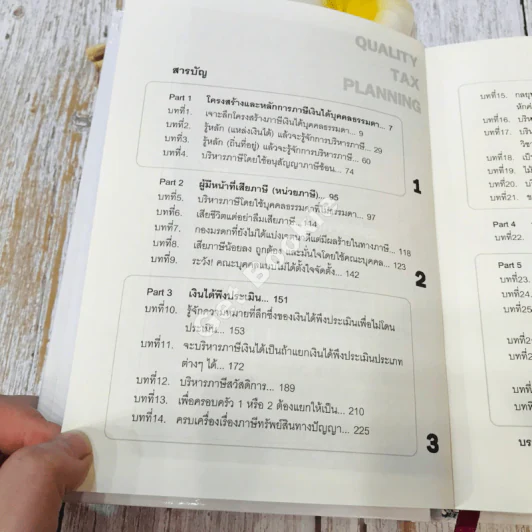 QUALITY
TAX
PLANNING
สารบัญ
Part 1 โครงสร้างและหลักการภาษีเงินได้บุคคลธรรมดา... 7
บทที่1. เจาะลึกโครงสร้างภาษีเงินได้บุคคลธรรมดา... 9
บทที่2. รู้หลัก (แหล่งเงินได้) แล้วจะรู้จักการบริหารภาษี... 29
บทที่3. รู้หลัก (ถิ่นที่อยู่) แล้วจะรู้จักการบริหารภาษี... 60
บทที่4. บริหารภาษีโดยใช้อนุสัญญาภาษีซ้อน... 74
1
Part 2 ผู้มีหน้าที่เสียภาษี (หน่วยภาษี)... 95
บทที่5. บริหารภาษีโดยใช้บุคคลธรรมดาที่ไม่ธรรมดา... 97
บทที่6. เสียชีวิตแต่อย่าลืมเสียภาษี... 144
บทที่7. กองมรดกที่ยังไม่ได้แบ่ง มีผลร้ายในทางภาษี... 118
บทที่8. เสียภาษีน้อยลง ถูกต้อง และมั่นใจโดยใช้คณะบุคคล... 123
บทที่9. ระวัง! คณะบุคคล ไม่ได้ตั้งใจจัดตั้ง... 142
2
Part 3 เงินได้พึงประเมิน... 151
บทที่10. รู้จักความหมายที่ลึกซึ้งของเงินได้พึงประเมินเพื่อไม่โดน
ประเมิน... 153
บทที่11. จะบริหารภาษีเงินได้เป็นถ้าแยกเงินได้พึงประเมินประเภท
ต่างๆ ได้... 172
บทที่12. บริหารภาษีสวัสดิการ... 189
บทที่13. เพื่อครอบครัว 1 หรือ 2 ต้องแยกให้เป็น... 210
บทที่14. ครบเครื่องเรื่องภาษีทรัพย์สินทางปัญญา... 225
3
บทที่15. กลยุ
หักค่
บทที่16. บริห
บทที่17. บริห
วิชา
บทที่18. เป็
บทที่19. ไม้
บทที่20. บริ
บทที่21.
Part 4
บทที่22.
Part 5
บทที่23.
บทที่24.
บทที่25
บทที่2
บทที่